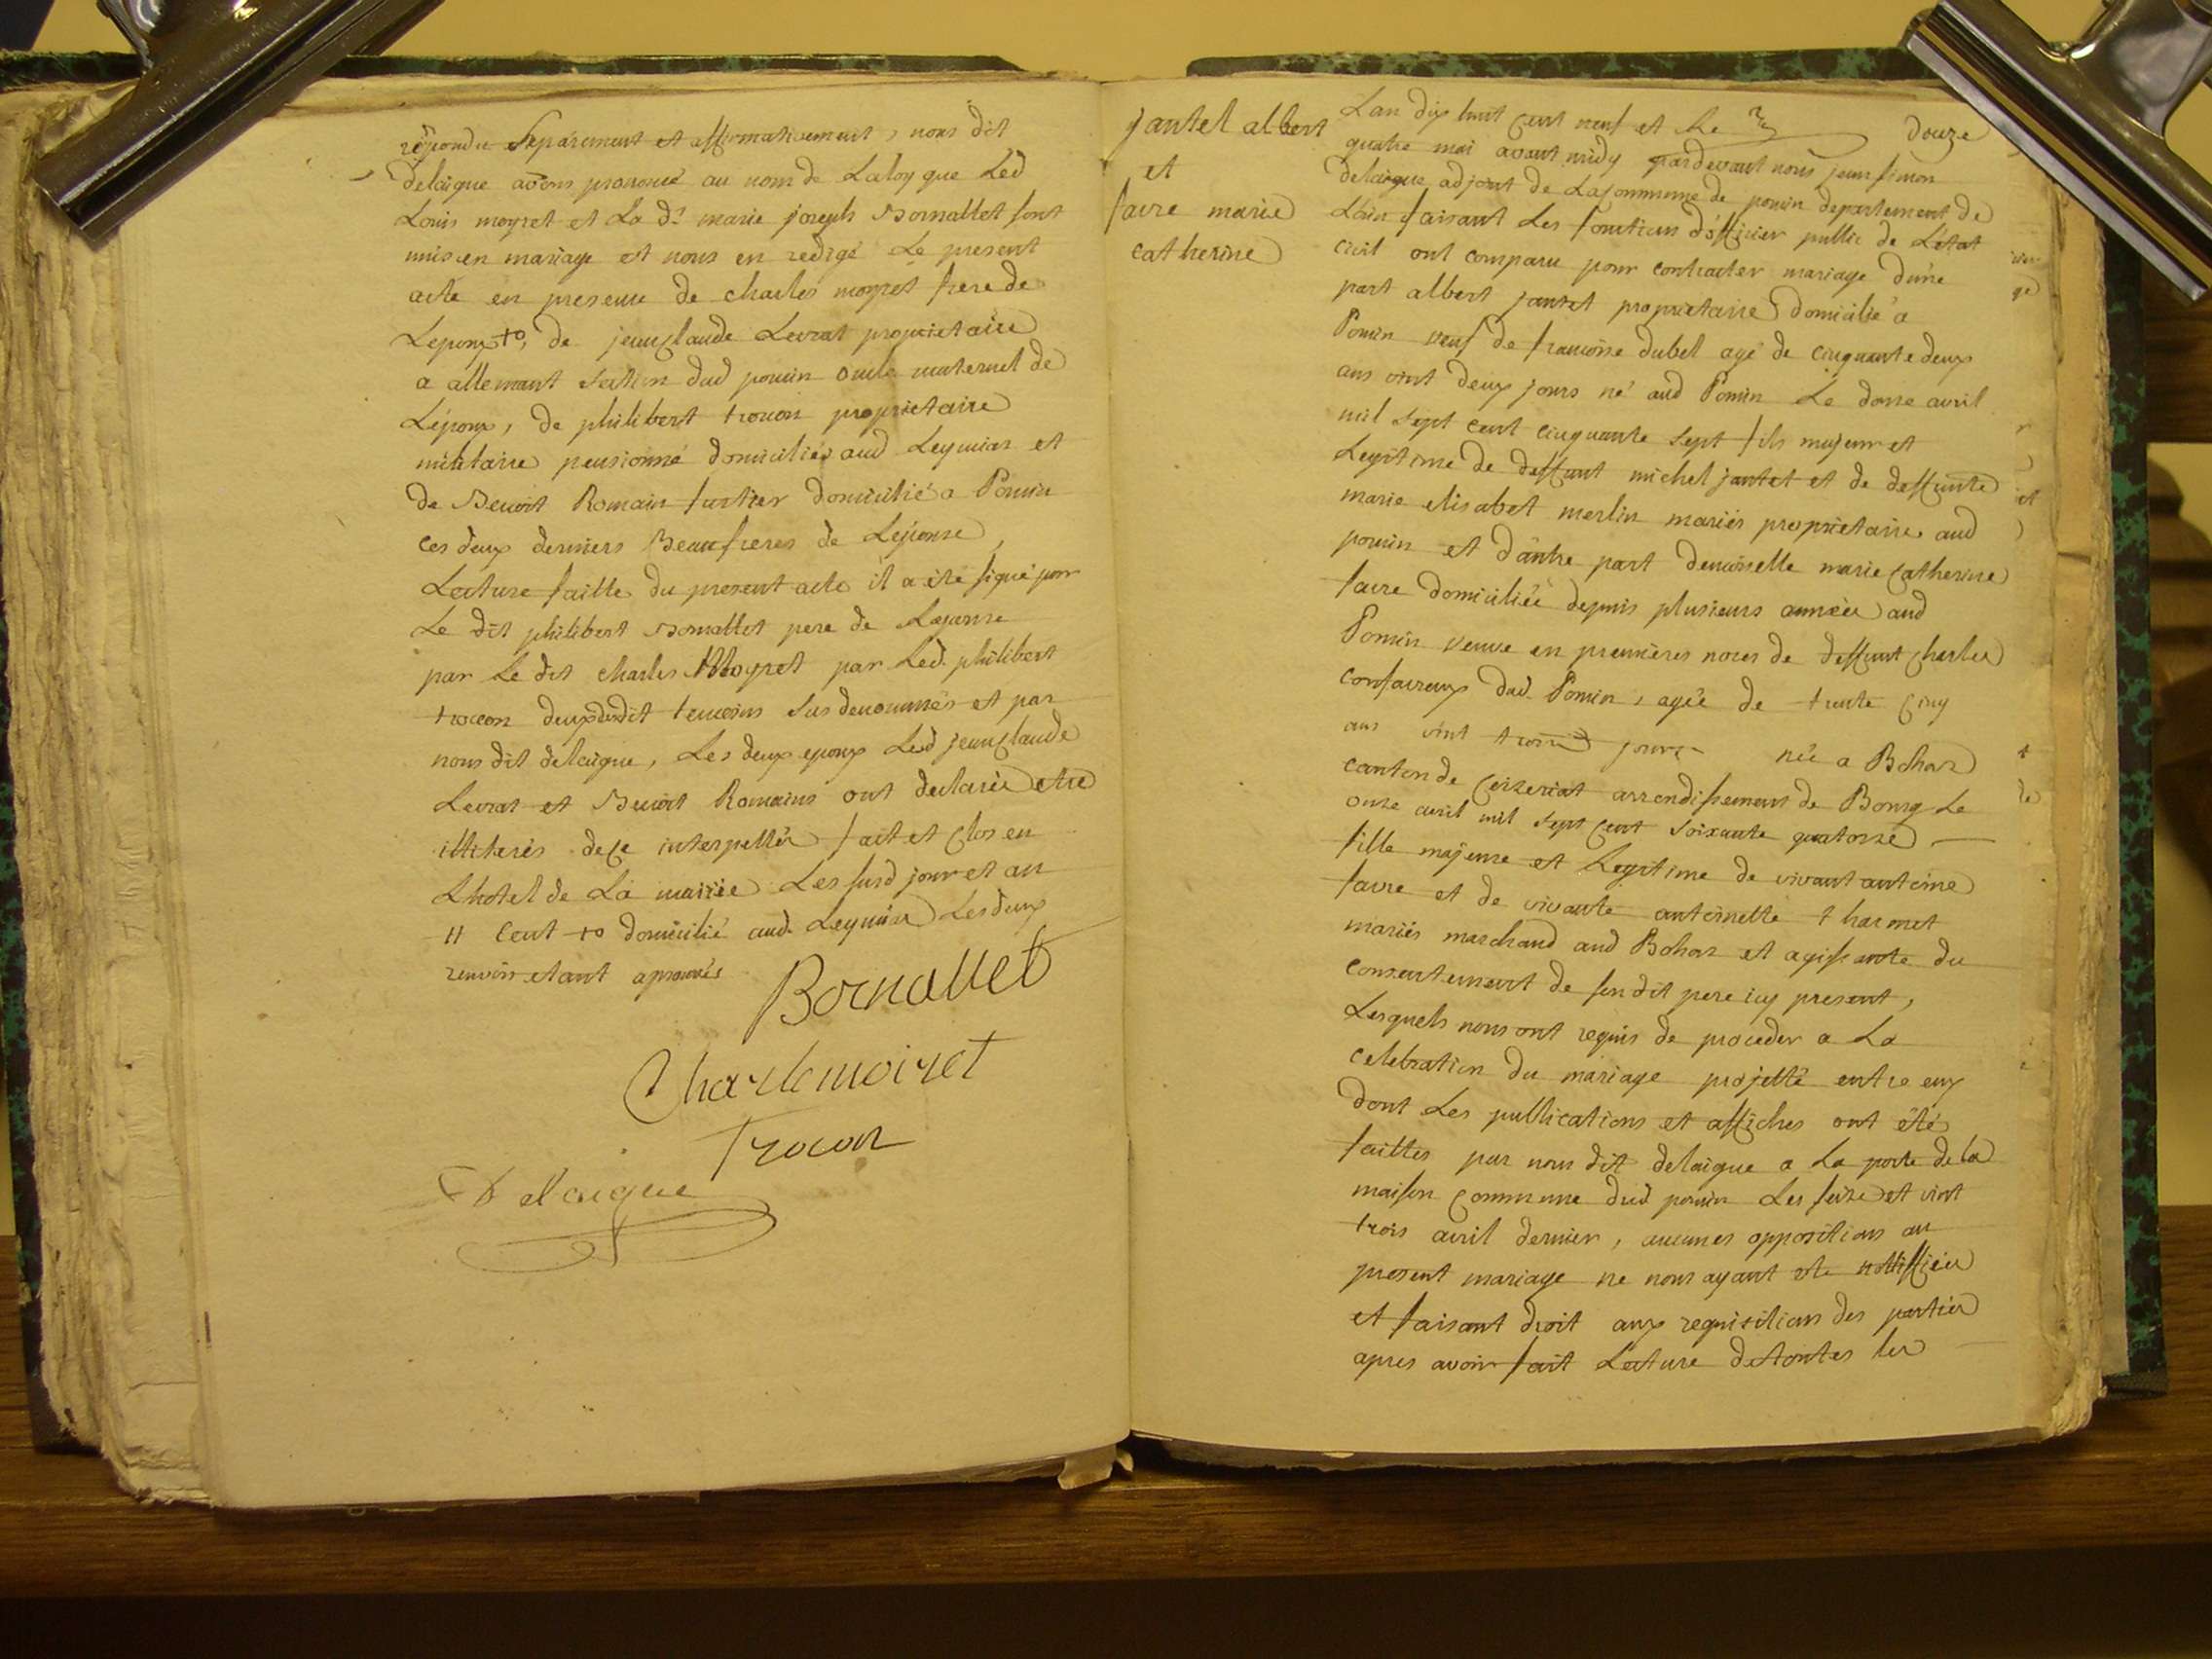 répondu Separément et affirmativement, nous dit
delaigue avons prononcé au nom de Laloy que Led
Louis moyret et La de marie joseph Bornallet sont
unis en mariage et nous en redigé Le present
acte en presence de charles moyret frere de
Lepoux +o, de jean Claude Levrat proprietaire
a allemant section dud poncin oncle maternel de
Lépoux, de philibert trocon proprietaire
militaire pensionné domiciliés aud Leymiat et
de Benoit Romain domicilié a Poncin
ces deux derniers Beaufreres de Lépouse,
Lecture faitte du present acte il a été signé par
Le dit philibert Bornallet pere de Lepouse
par Le dit charles Moyret par Led. philibert
trocon deux desdit temoins sus denommés et par
nous dit delaigue, Les deux epoux Led jean Claude
Levrat et Benoit Romains ont declarés etre
illiterés de ce interpellés fait et Clos en
Lhotel de La mairie Les susd jour et an
11 Cent +o domicilié aud. Leymiat Les deux
renvois etant aprouvés
Bornallet
Charle moiret
Trocon
Delaigue
jantet albert
et
favre marie
catherine
Lan dix huit Cent neuf et Le douze
quatre mai avant midy pardevant nous jean simon
delaigue adjoint de La Commune de poncin departement de
Lain faisant Les fonctions d'officier public de Létat
civil ont comparu pour contracter mariage d'une
part albert jantet proprietaire domicilié a
Poncin veuf de francoise dubel agé de cinquante deux
ans vint deux jours né aud Poncin Le douse avril
mil sept cent cinquante sept fils majeur et
Legitime de deffunt michel jantet et de deffunte
marie elisabet merlin mariés proprietaires aud
poncin et d'autre part demoiselle marie Catherine
favre domiciliée depuis plusieurs années aud
Poncin veuve en premières noces de deffunt Charles
Confavreux dud. Poncin, agée de trente Cinq
ans vint trois jours née a Bohas
canton de Ceizeriat arrondissement de Bourg Le
onze avril mil sept Cent soixante quatorze
fille majeure et Legitime de vivant antoine
favre et de vivante antoinette tharmet
mariés marchand aud Bohas et agissante du
consentement de son dit pere icy present,
Lesquels nous ont requis de proceder a La
celebration du mariage projetté entre eux
dont Les publications et affiches ont été
faittes par nous dit delaigue a La porte de la
maison Commune dud poncin Les seize et vint
trois avril dernier, aucunes oppositions au
present mariage ne nous ayant ete nottiffiées
et faisant droit aux requisitions des parties
apres avoir fait Lecture de toutes les